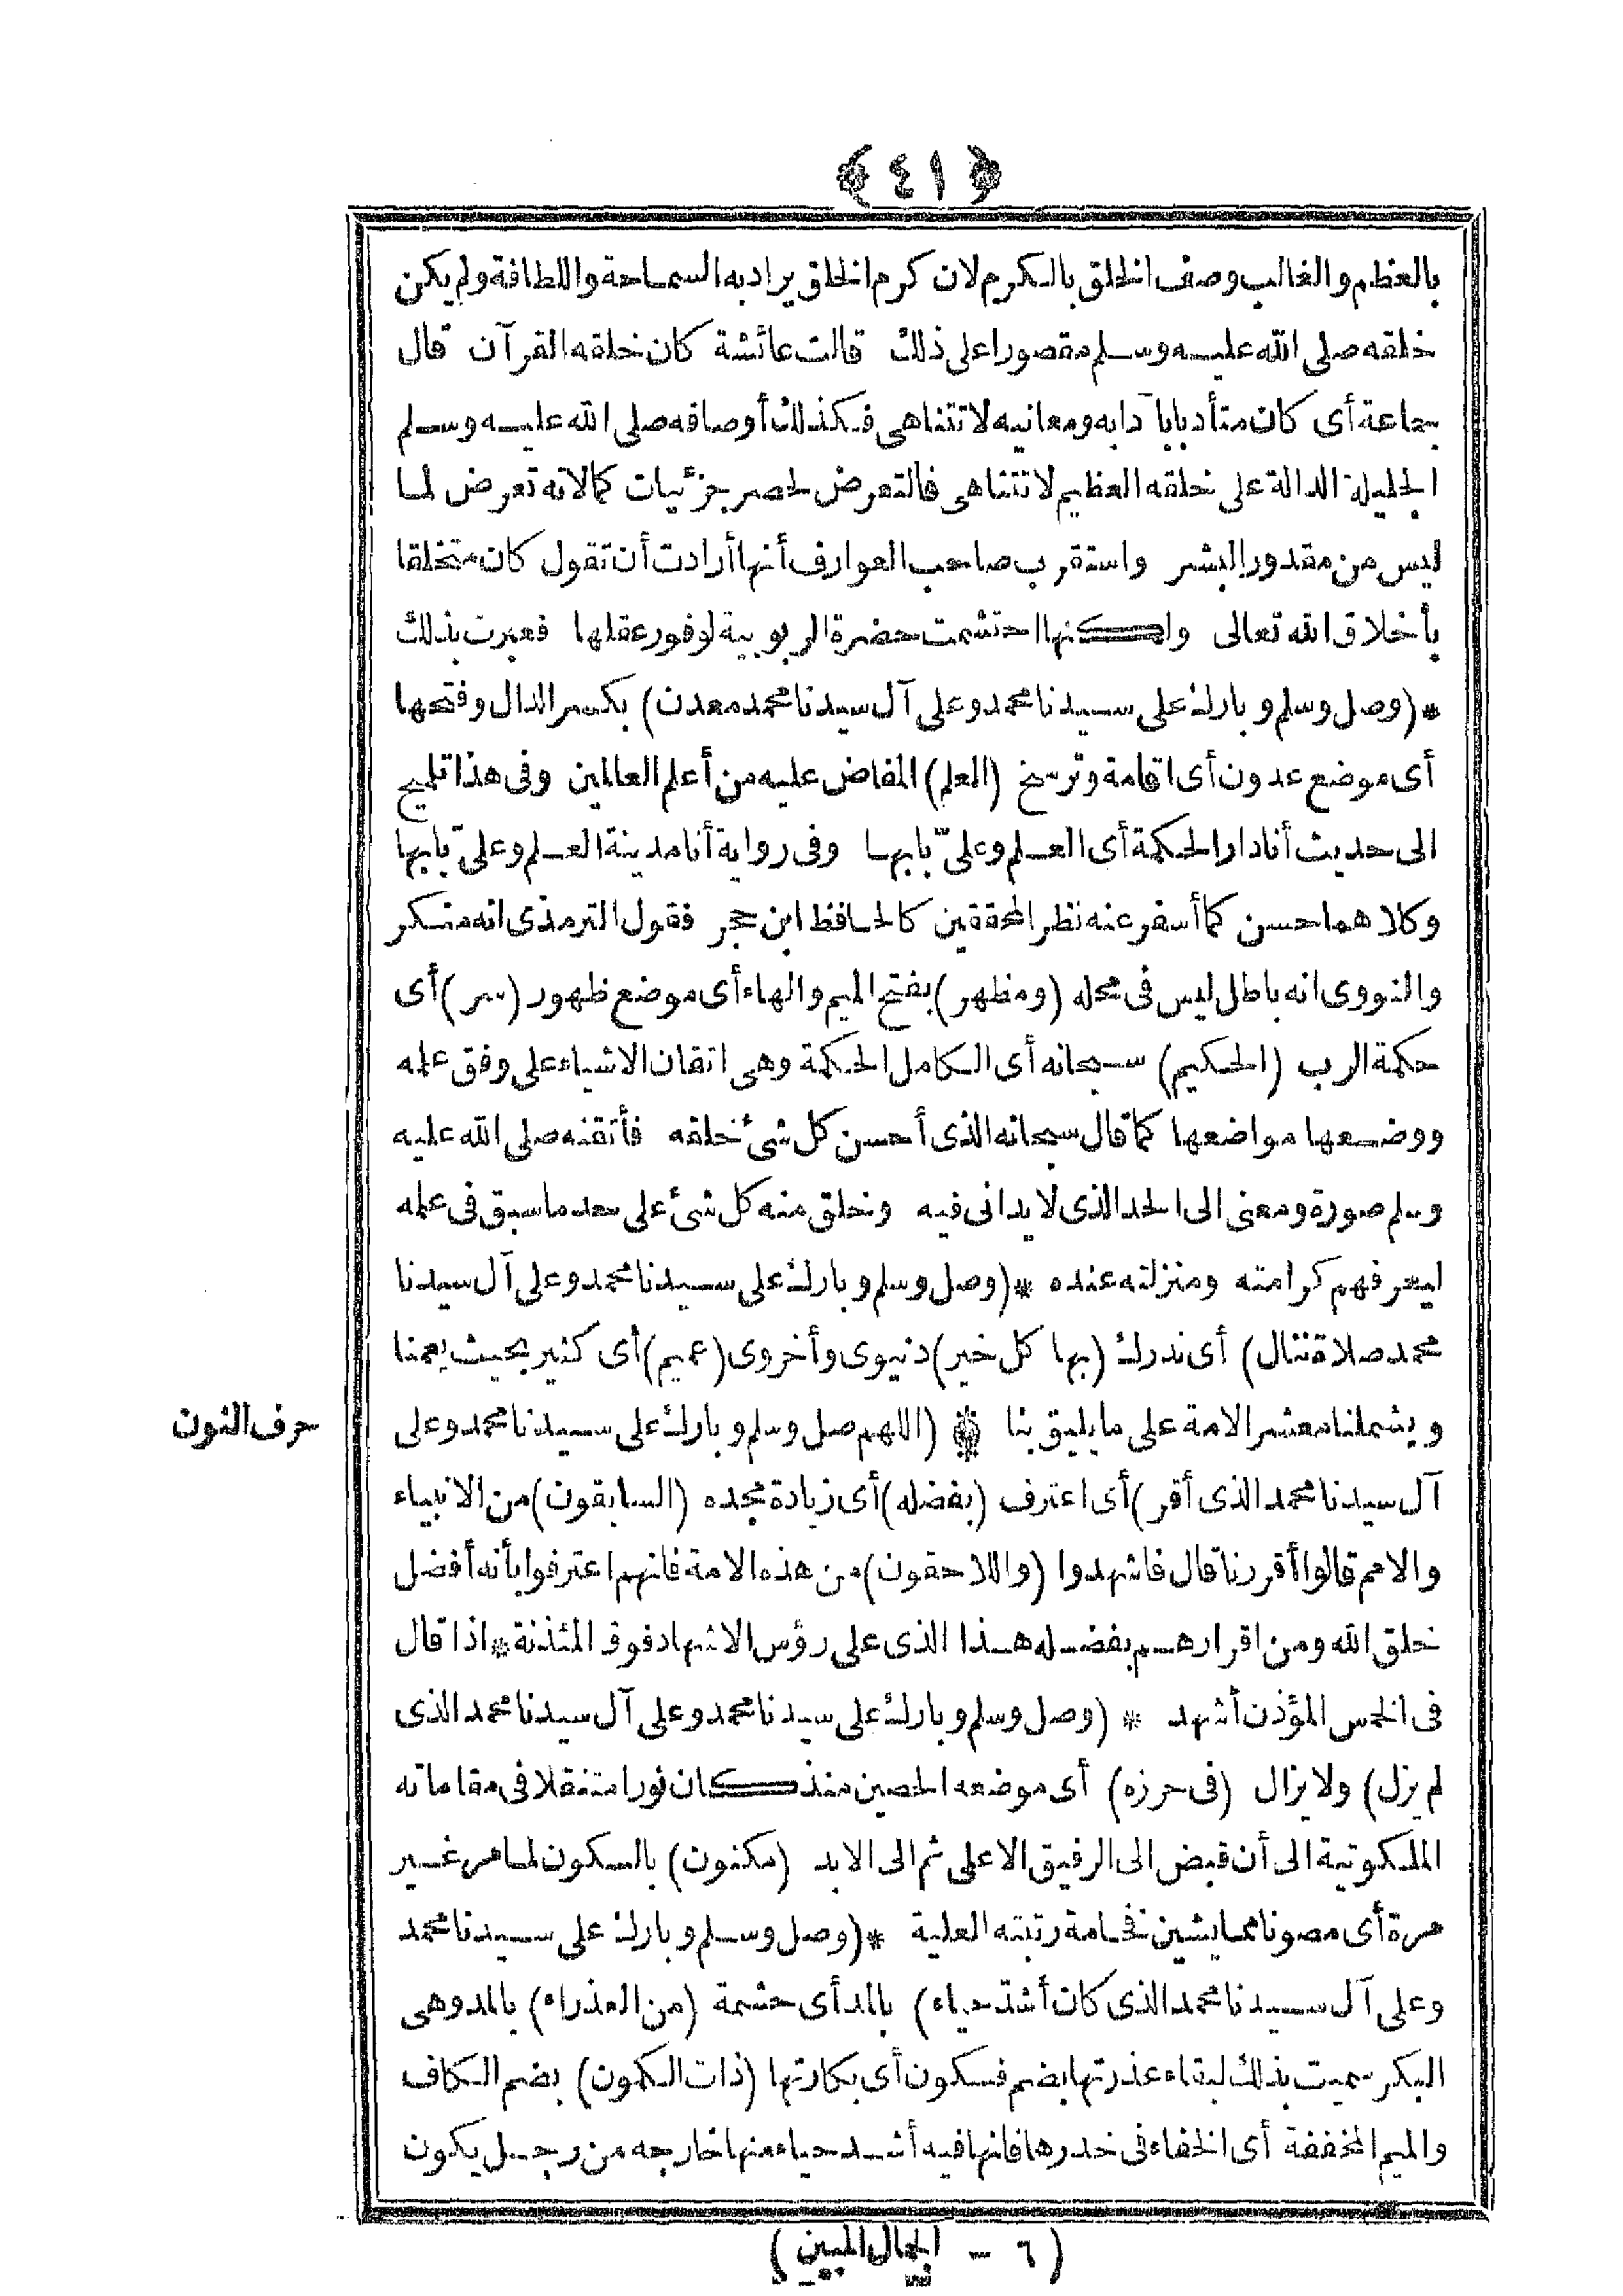 ﴿ ٤١ ﴾
بالعظم والغالب وصف الخلق بالكرم لان كرم الخلق يراد به السماحة واللطافة ولم يكن
خلقه صلى الله عليه وسلم مقصورا على ذلك قالت عائشة كان خلقه القرآن قال
جماعة أى كان متأدبا بآدابه ومعانيه لا تتناهى فكذلك أوصافه صلى الله عليه وسلم
الجليلة الدالة على خلقه العظيم لا تتناهى فالتعرض لحصر جزئيات كمالاته تعرض لما
ليس من مقدور البشر واستقرب صاحب العوارف أنها أرادت أن تقول كان متخلقا
بأخلاق الله تعالى ولكنها احتشمت حضرة الربوبية لوفور عقلها فعبرت بذلك
* (وصل وسلم وبارك على سيدنا محمد وعلى آل سيدنا محمد معدن) بكسر الدال وفتحها
أى موضع عدون أى اقامة وترسخ (العلم) المفاض عليه من أعلم العالمين وفى هذا تلميح
الى حديث أنا دار الحكمة أى العلم وعلىّ بابها وفى رواية أنا مدينة العلم وعلىّ بابها
وكلاهما حسن كما أسفر عنه نظر المحققين كالحافظ ابن حجر فقول الترمذى انه منكر
والنووى انه باطل ليس فى محله (ومظهر) بفتح الميم والهاء أى موضع ظهور (سر) أى
حكمة الرب (الحكيم) سبحانه أى الكامل الحكمة وهى اتقان الاشياء على وفق علمه
ووضعها مواضعها كما قال سبحانه الذى أحسن كل شئ خلقه فأتقنه صلى الله عليه
وسلم صورة ومعنى الى الحد الذى لا يدانى فيه وخلق منه كل شئ على حد ما سبق فى علمه
ليعرفهم كرامته ومنزلته عنده * (وصل وسلم وبارك على سيدنا محمد وعلى آل سيدنا
محمد صلاة تنال) أى ندرك (بها كل خير) دنيوى وأخروى (عميم) أى كثير بحيث يعمنا
ويشملنا معشر الامة على ما يليق بنا * (اللهم صل وسلم وبارك على سيدنا محمد وعلى
حرف النون
آل سيدنا محمد الذى أقر) أى اعترف (بفضله) أى زيادة مجده (السابقون) من الانبياء
والامم قالوا أقررنا قال فاشهدوا (واللاحقون) من هذه الامة فانهم اعترفوا بأنه أفضل
خلق الله ومن اقرارهم بفضله هذا الذى على رؤس الاشهاد فوق المئذنة * اذا قال
فى الخمس المؤذن أشهد * (وصل وسلم وبارك على سيدنا محمد وعلى آل سيدنا محمد الذى
لم يزل) ولا يزال (فى حرزه) أى موضعه الحصين منذ كان نورا متنقلا فى مقاماته
الملكوتية الى أن قبض الى الرفيق الاعلى ثم الى الابد (مكنون) بالسكون لما مر غير
مرة أى مصونا مما يشين فخامة رتبته العلية * (وصل وسلم وبارك على سيدنا محمد
وعلى آل سيدنا محمد الذى كان أشدّ حياء) بالمد أى حشمة (من العذراء) بالمد وهى
البكر سميت بذلك لبقاء عذرتها بضم فسكون أى بكارتها (ذات الكمون) بضم الكاف
والميم المخففة أى الخفاء فى خدرها فانها فيه أشد حياء منها خارجه من رجل يكون
( ٦ - الجمال المبين )